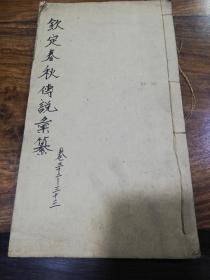 欽定春秋傳說彙纂
卷三十二之三十三